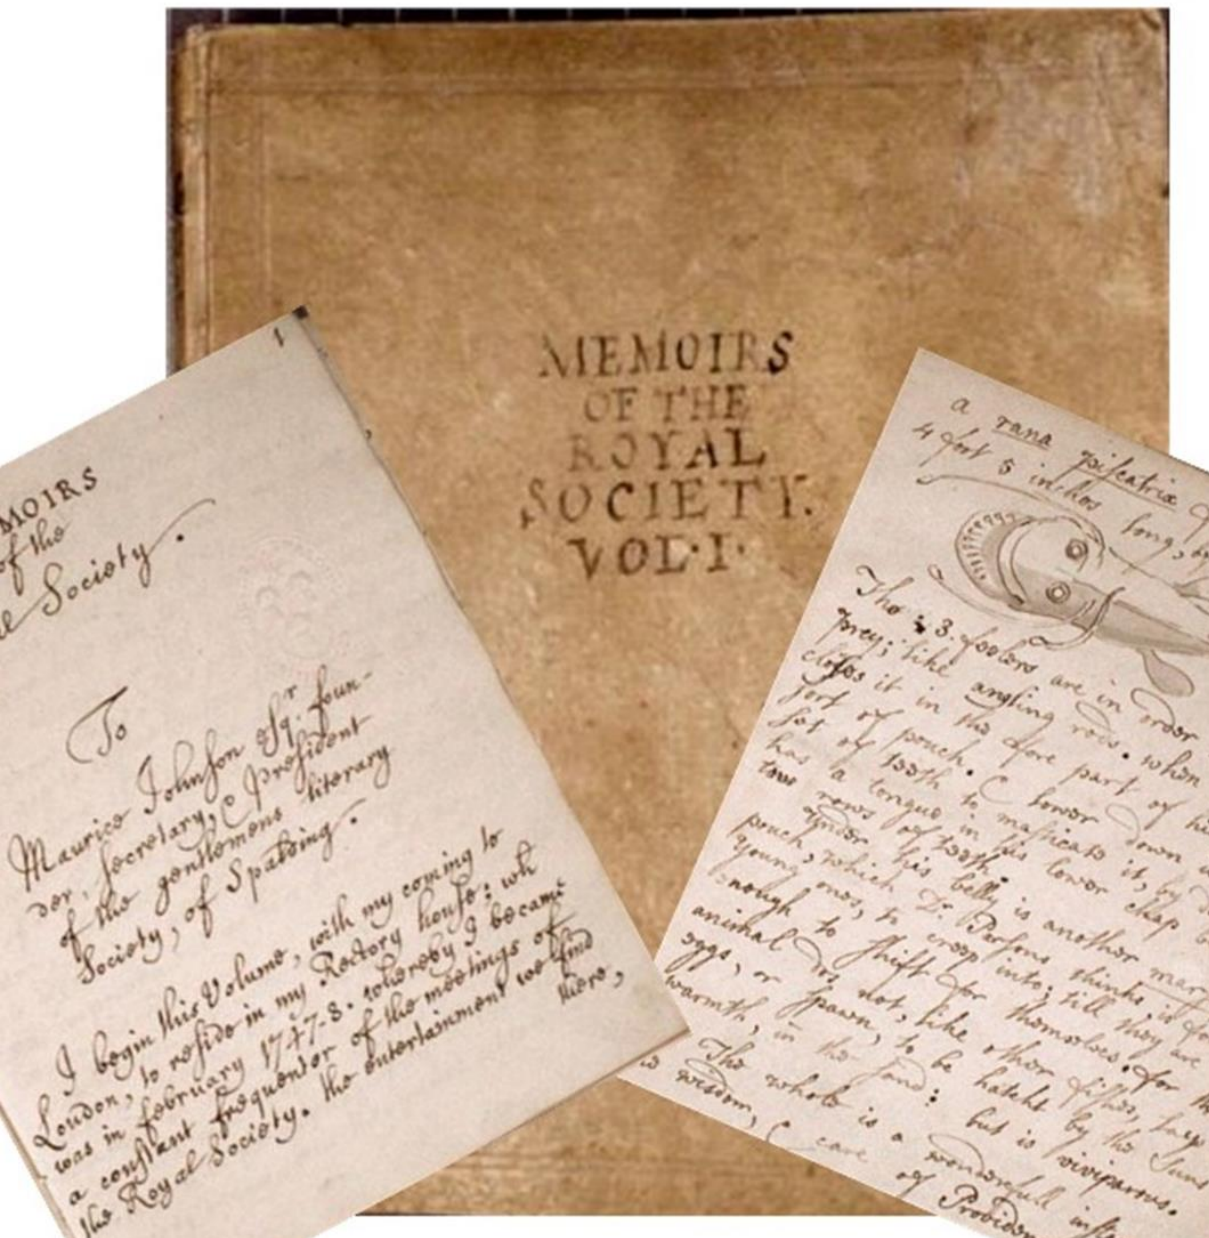 MEMOIRS
OF THE
ROYAL
SOCIETY.
VOL·I·
1
MOIRS
of the
Society.
To
Maurice Johnson Esqr. foun-
der, secretary, & president
of the gentlemens literary
Society, of Spalding.
I begin this Volume, with my coming to
London, to reside in my Rectory house: wh
was in february 1747-8. whereby I became
a constant frequenter of the meetings of
the Royal Society. the entertainment we find
there,
a rana piscatrix
4 foot 5 inches long,
The 3. feelers are in order
prey; like angling rods. when
closes it in the fore part of hi
sort of pouch. & lower down
set of teeth to masticate it,
has a tongue in his lower chap
tow rows of teeth.
under his belly is another
pouch which Dr. Parsons thinks, is fo
young ones, to creep into; till they are
enough to shift for themselves. for th
animal do's not, like other fishes, lays
eggs, or spawn, to be hatcht by the Suns
warmth, in the sand: but is viviparous.
The whole is a wonderfull
wisdom, & care of Providen